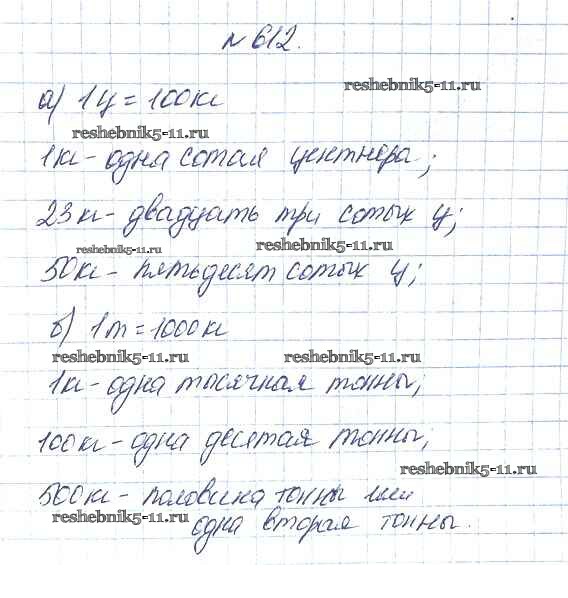 № 612.
reshebnik5-11.ru
а) 1ц = 100кг
reshebnik5-11.ru
1кг - одна сотая центнера;
23кг - двадцать три сотых ц;
reshebnik5-11.ru reshebnik5-11.ru
50кг - пятьдесят сотых ц;
б) 1т = 1000кг
reshebnik5-11.ru reshebnik5-11.ru
1кг - одна тысячная тонны;
100кг - одна десятая тонны;
reshebnik5-11.ru
500кг - половина тонны или
reshebnik5-11.ru
одна вторая тонны.